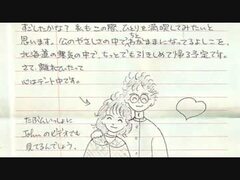 むしたかな？ 私もこの際、ひとりを満喫してみたいと
思います。公のやさしさの中で、わがままになってるよしこを、
北海道の寒気の中で、ちっとでも引きしめて帰る予定です。
さて、離れていたって
心はデート中です。
たぶんいっしょに
のビデオでも
見てるんでしょう。